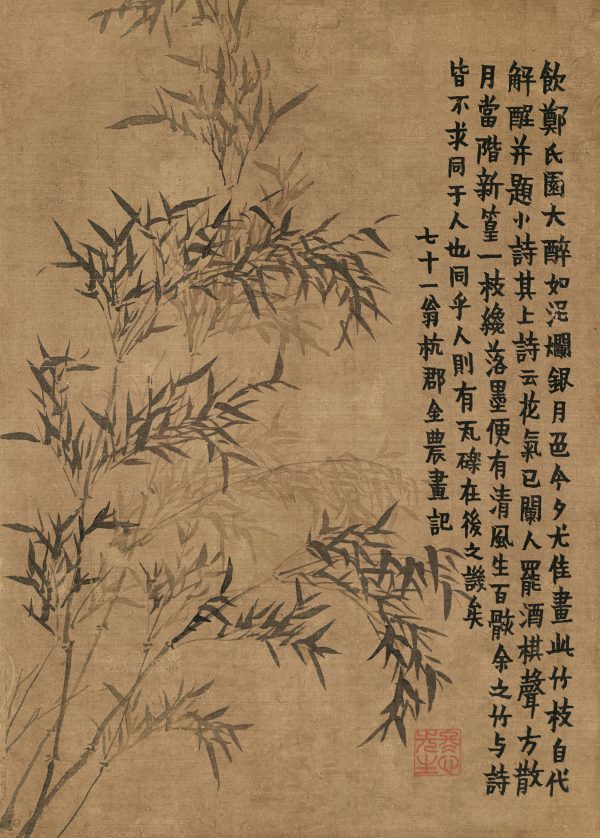 飲鄭氏園大醉如泥爛銀月色今夕尤佳畫此竹枝自代
解醒并題小詩其上詩云花氣已闌人罷酒棋聲方散
月當階新篁一枝纔落墨便有清風生百骸余之竹與詩
皆不求同于人也同乎人則有瓦礫在後之譏矣
七十一翁杭郡金農畫記
冬心先生